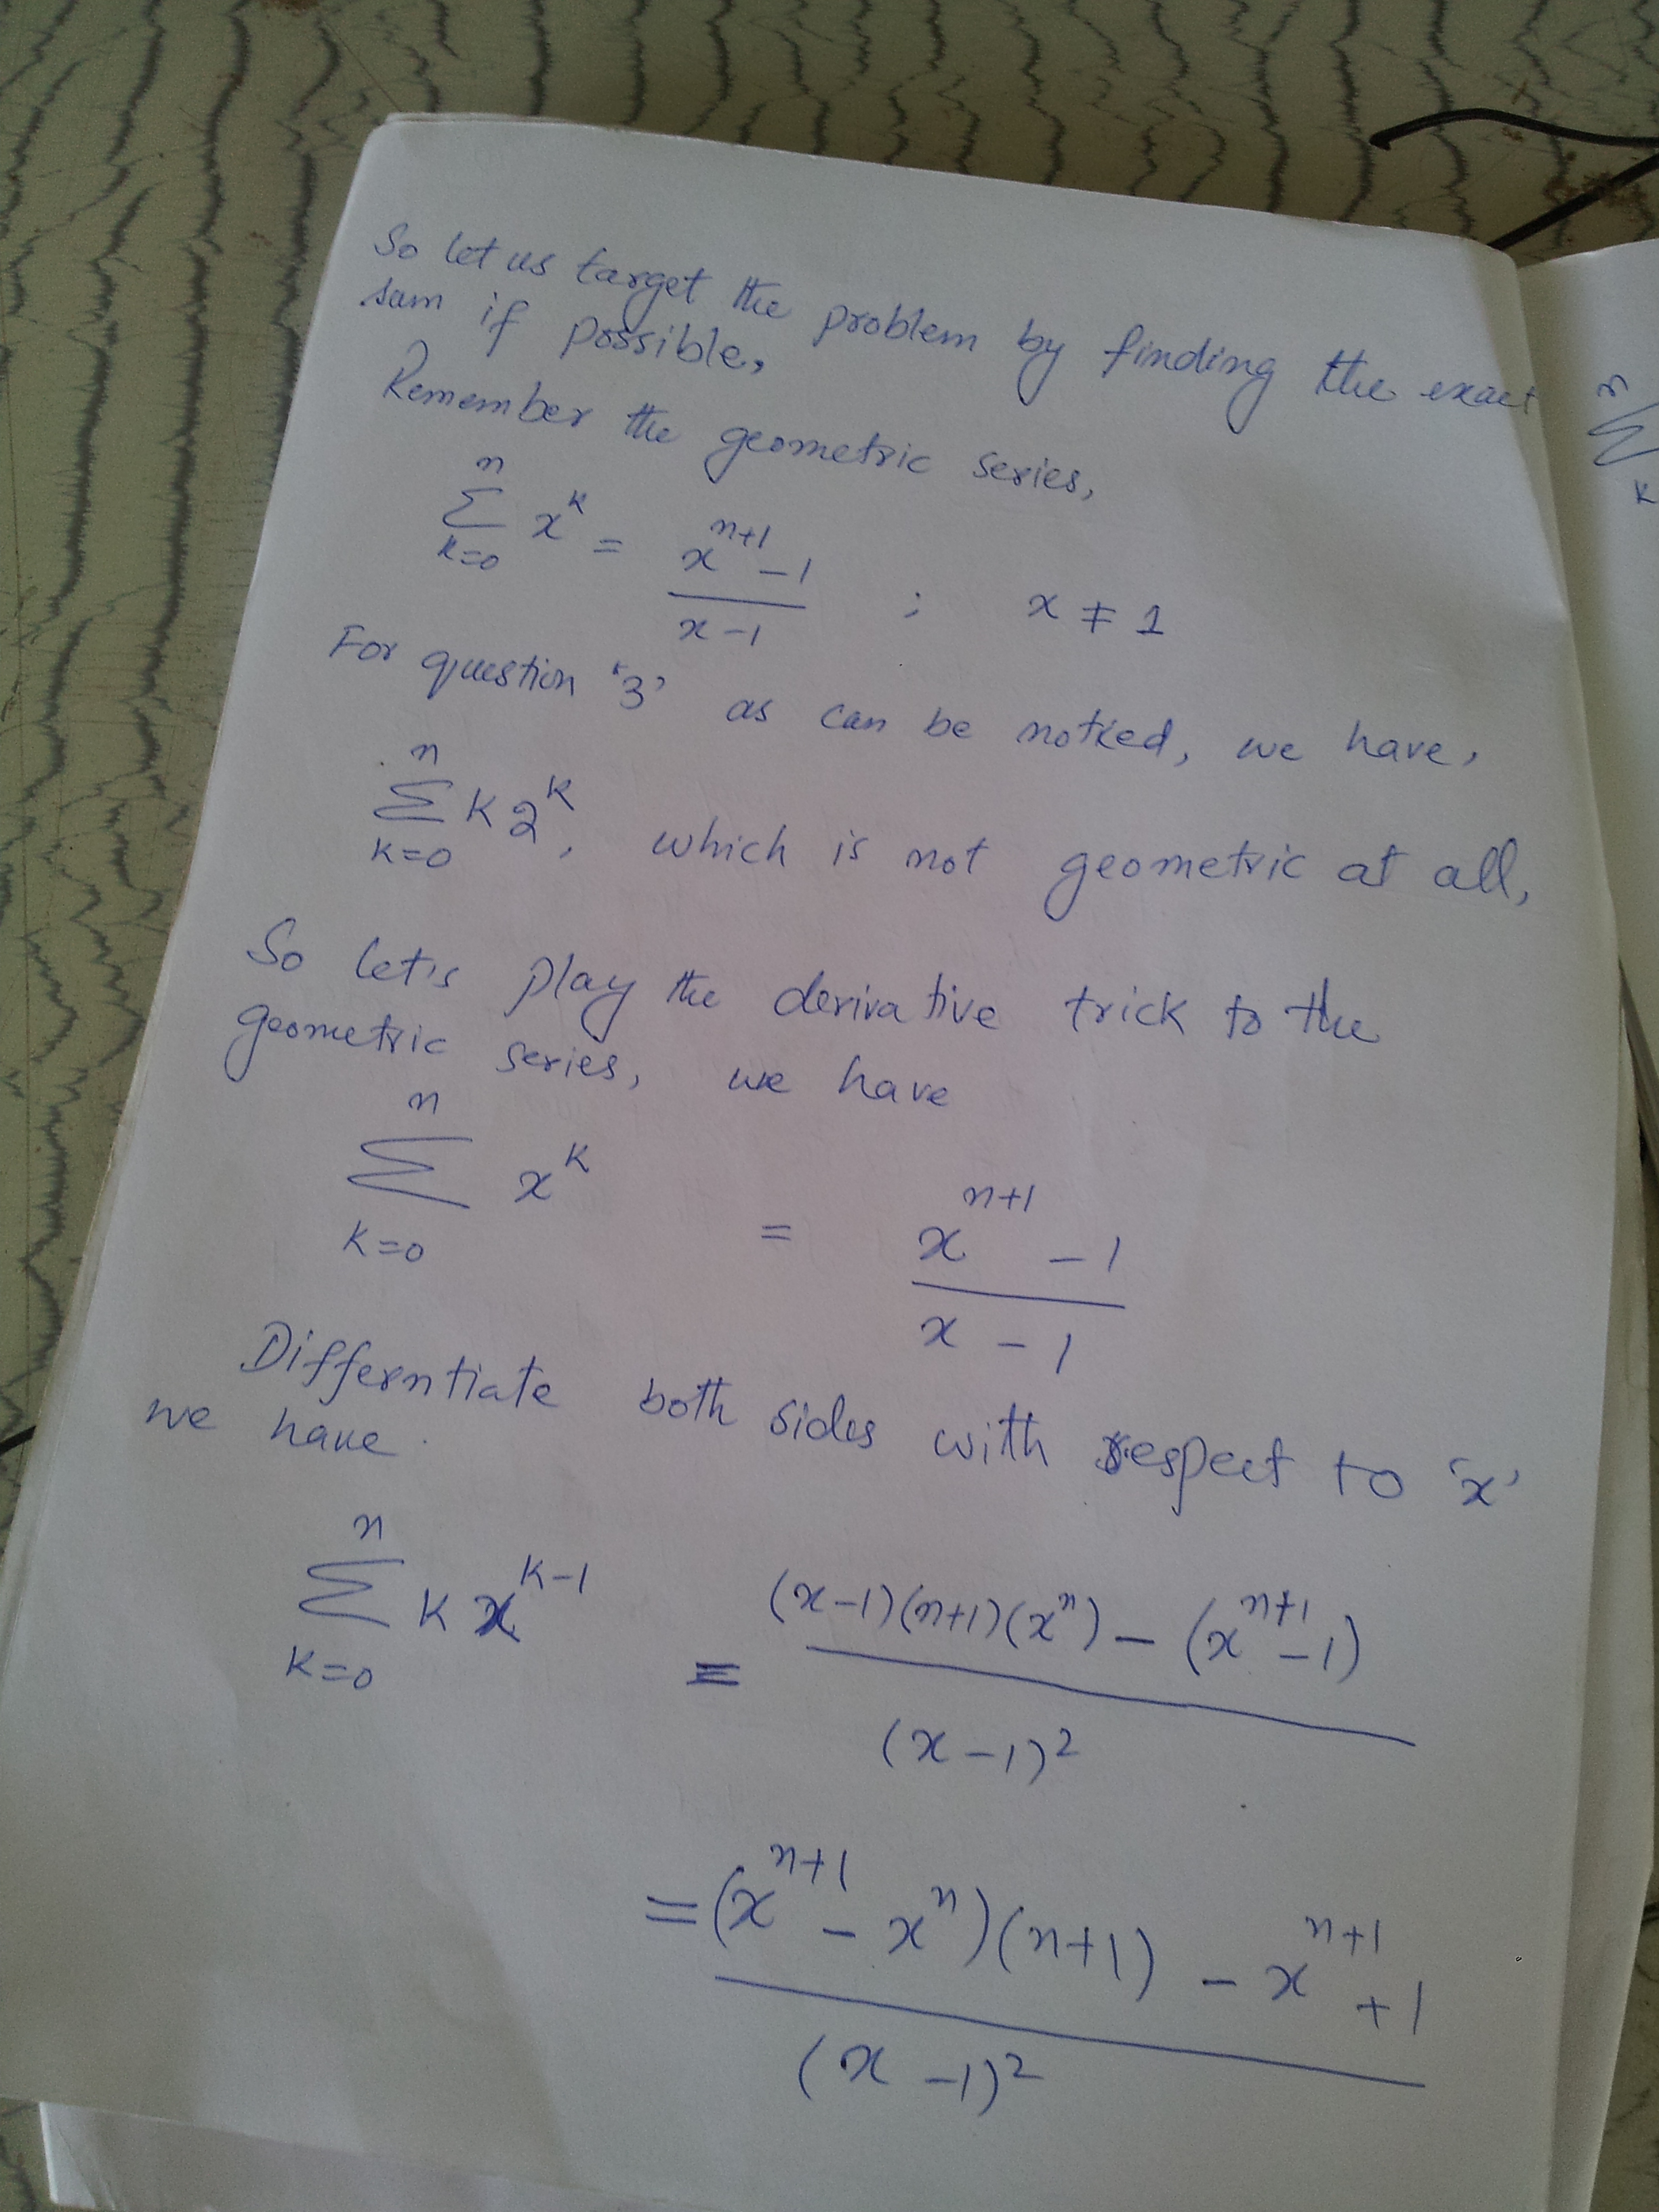 So let us target the problem by finding the exact
sum if possible,
Remember the geometric series,
n
∑ x^k = (x^(n+1) - 1)/(x - 1) ; x ≠ 1
k=0
For question '3', as can be notied, we have,
n
∑ k 2^k, which is not geometric at all,
k=0
So let's play the derivative trick to the
geometric series, we have
n
∑ x^k = (x^(n+1) - 1)/(x - 1)
k=0
Differntiate both sides with respect to 'x'
we have.
n
∑ k x^(k-1) = ((x-1)(n+1)(x^n) - (x^(n+1) - 1))/(x - 1)^2
k=0
= ((x^(n+1) - x^n)(n+1) - x^(n+1) + 1)/(x - 1)^2
n
∑
k